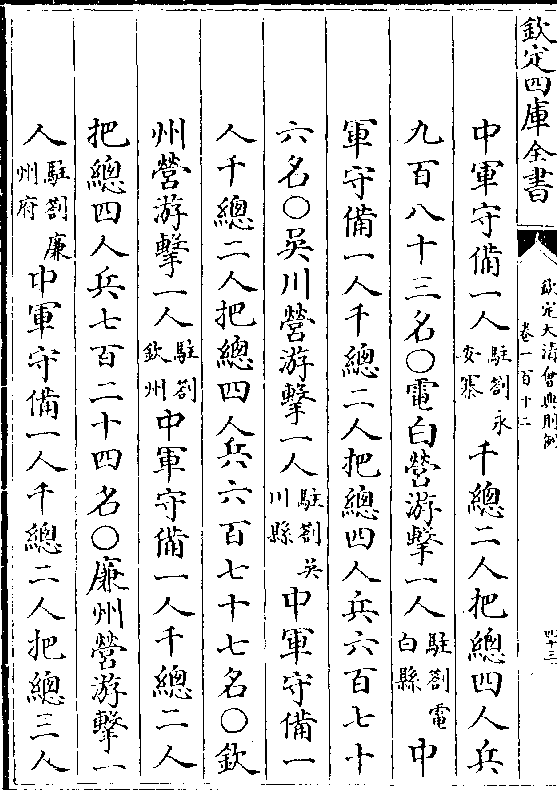 欽定四庫全書
欽定大清會典則例
卷一百十二
四十三
中軍守備一人駐劄永安寨千總二人把總四人兵
九百八十三名〇電白營游擊一人駐劄電白縣中
軍守備一人千總二人把總四人兵六百七十
六名〇吳川營游擊一人駐劄吳川縣中軍守備一
人千總二人把總四人兵六百七十七名〇欽
州營游擊一人駐劄欽州中軍守備一人千總二人
把總四人兵七百二十四名〇廉州營游擊一
人駐劄廉州府中軍守備一人千總二人把總三人